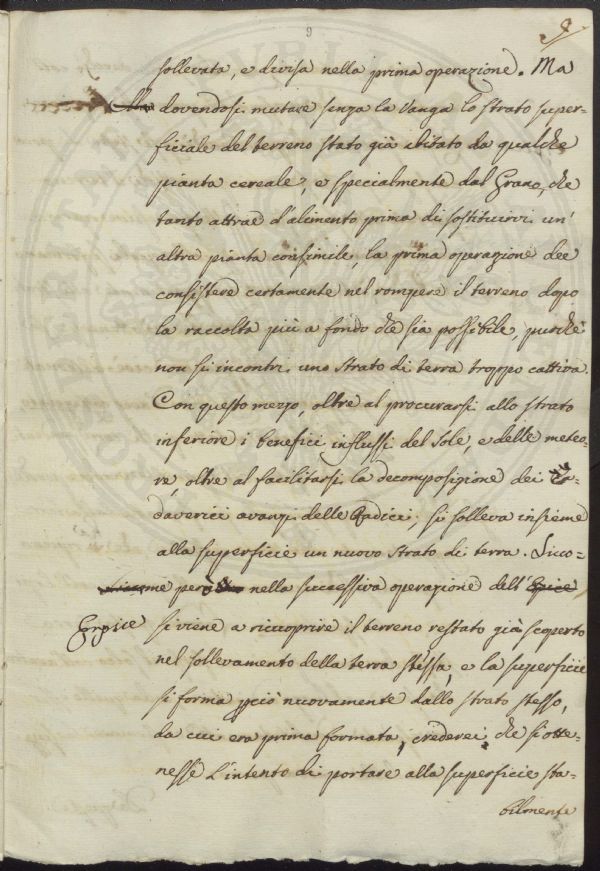 9
9
sollevata, e divisa nella prima operazione. Ma
dovendosi mutare senza la Vanga lo strato super-
ficiale del terreno stato già abitato da qualche
pianta cereale, e specialmente dal Grano, che
tanto attrae d'alimento prima di sostituirvi un'
altra pianta consimile, la prima operazione dee
consistere certamente nel rompere il terreno dopo
la raccolta più a fondo che sia possibile, purchè
non si incontri uno strato di terra troppo cattiva.
Con questo mezzo, oltre al procurarsi allo strato
inferiore i benefici influssi del Sole, e delle meteo-
re, oltre al facilitarsi la decomposizione dei ca-
daverici avanzi delle Radici, si solleva insieme
alla superficie un nuovo strato di terra. Sicco-
me però nella successiva operazione dell' Erpice
Erpice si viene a riccoprire il terreno restato già scoperto
nel sollevamento della terra stessa, e la superficie
si forma pciò nuovamente dallo strato stesso,
da cui era prima formata, crederei, che si otte-
nesse l'intento di portare alla superficie sta-
bilmente